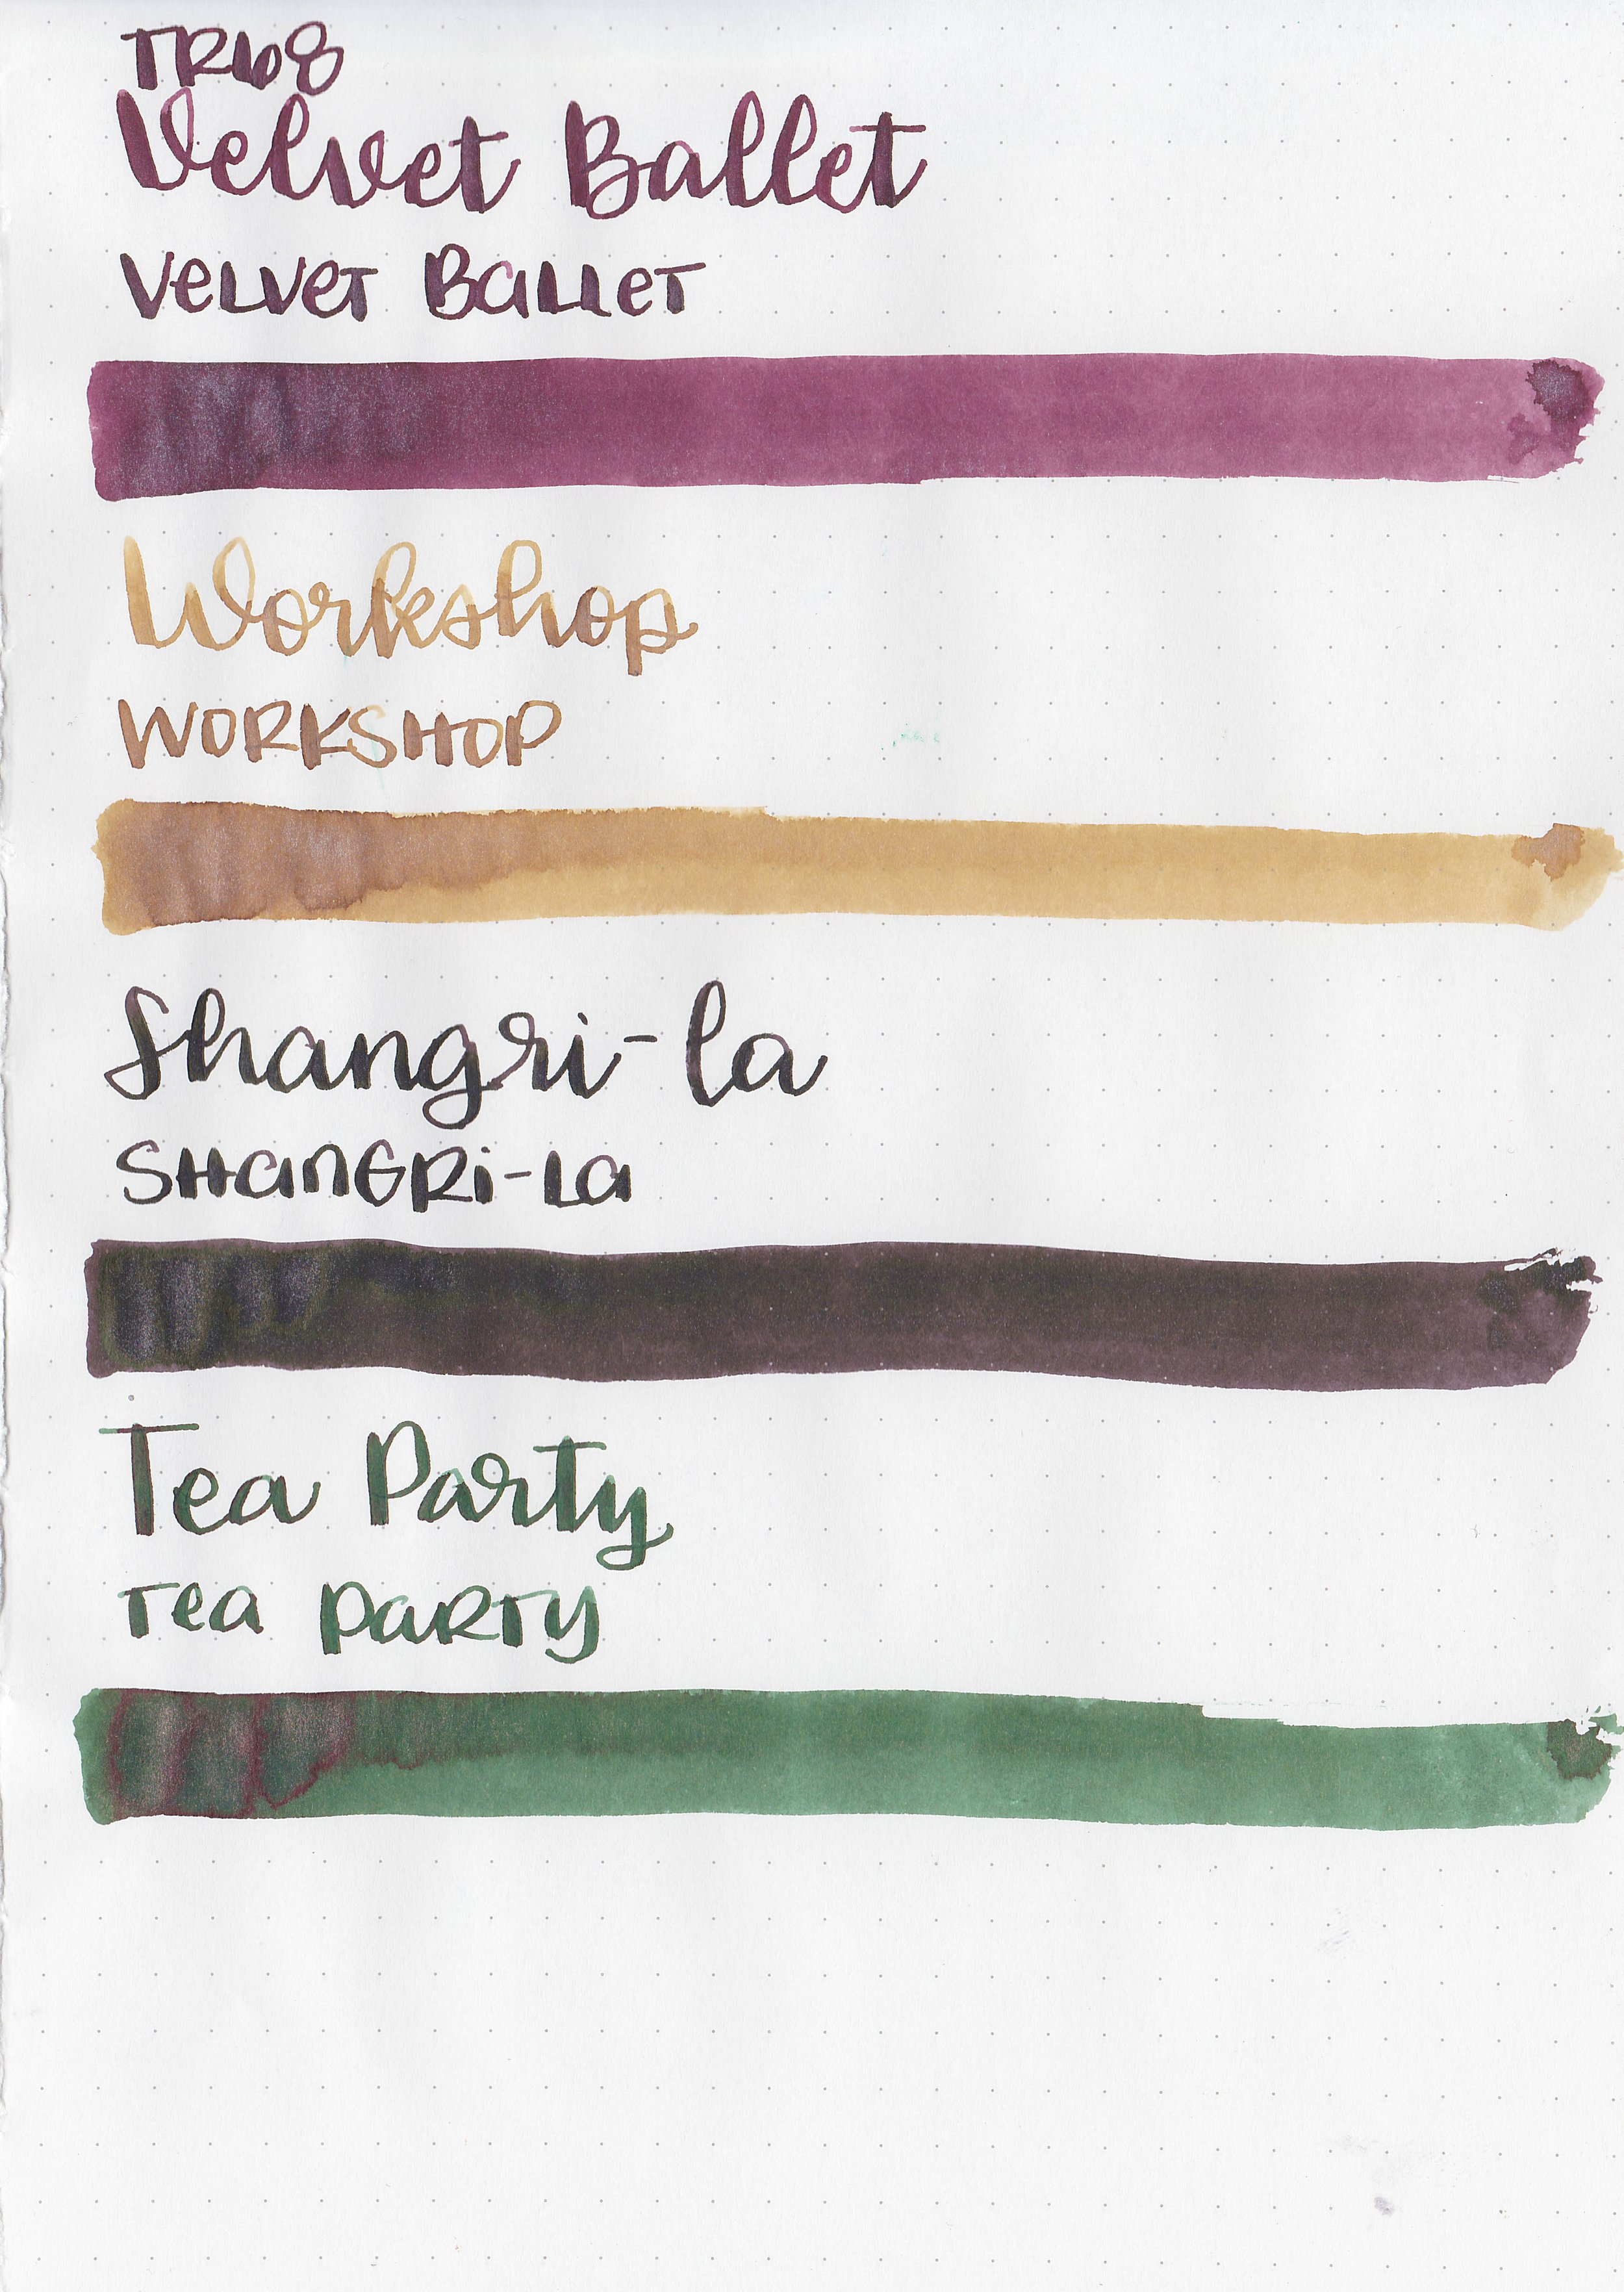 TR68
Velvet Ballet
Velvet Ballet
Workshop
WORKSHOP
Shangri-la
SHanGRi-La
Tea Party
Tea Party